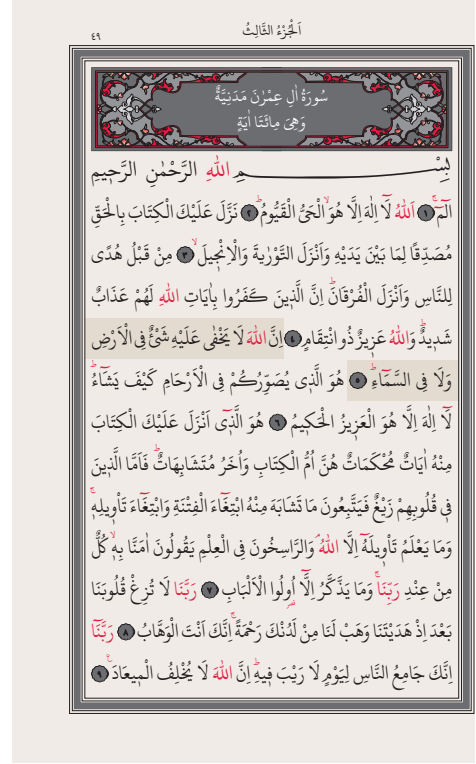 اَلْجُزْءُ الثَّالِثُ
٤٩
سُورَةُ اٰلِ عِمْرٰنَ مَدَنِيَّةٌ
وَهِيَ مِائَتَا اٰيَةٍ
بِسْمِ اللّٰهِ الرَّحْمٰنِ الرَّحِيمِ
الٓمٓۚ ﴿١﴾ اَللّٰهُ لَٓا اِلٰهَ اِلَّا هُوَۙ الْحَيُّ الْقَيُّومُۜ ﴿٢﴾ نَزَّلَ عَلَيْكَ الْكِتَابَ بِالْحَقِّ
مُصَدِّقًا لِمَا بَيْنَ يَدَيْهِ وَاَنْزَلَ التَّوْرٰيةَ وَالْاِنْجٖيلَۙ ﴿٣﴾ مِنْ قَبْلُ هُدًى
لِلنَّاسِ وَاَنْزَلَ الْفُرْقَانَۜ اِنَّ الَّذٖينَ كَفَرُوا بِاٰيَاتِ اللّٰهِ لَهُمْ عَذَابٌ
شَدٖيدٌۜ وَاللّٰهُ عَزٖيزٌ ذُو انْتِقَامٍ ﴿٤﴾ اِنَّ اللّٰهَ لَا يَخْفٰى عَلَيْهِ شَيْءٌ فِي الْاَرْضِ
وَلَا فِي السَّمَٓاءِۜ ﴿٥﴾ هُوَ الَّذٖي يُصَوِّرُكُمْ فِي الْاَرْحَامِ كَيْفَ يَشَٓاءُۜ
لَٓا اِلٰهَ اِلَّا هُوَ الْعَزٖيزُ الْحَكٖيمُ ﴿٦﴾ هُوَ الَّذٖٓي اَنْزَلَ عَلَيْكَ الْكِتَابَ
مِنْهُ اٰيَاتٌ مُحْكَمَاتٌ هُنَّ اُمُّ الْكِتَابِ وَاُخَرُ مُتَشَابِهَاتٌۜ فَاَمَّا الَّذٖينَ
فٖي قُلُوبِهِمْ زَيْغٌ فَيَتَّبِعُونَ مَا تَشَابَهَ مِنْهُ ابْتِغَٓاءَ الْفِتْنَةِ وَابْتِغَٓاءَ تَأْوٖيلِهٖۚ
وَمَا يَعْلَمُ تَأْوٖيلَهُٓ اِلَّا اللّٰهُۢ وَالرَّاسِخُونَ فِي الْعِلْمِ يَقُولُونَ اٰمَنَّا بِهٖۙ كُلٌّ
مِنْ عِنْدِ رَبِّنَاۚ وَمَا يَذَّكَّرُ اِلَّٓا اُولُوا الْاَلْبَابِ ﴿٧﴾ رَبَّنَا لَا تُزِغْ قُلُوبَنَا
بَعْدَ اِذْ هَدَيْتَنَا وَهَبْ لَنَا مِنْ لَدُنْكَ رَحْمَةًۚ اِنَّكَ اَنْتَ الْوَهَّابُ ﴿٨﴾ رَبَّنَٓا
اِنَّكَ جَامِعُ النَّاسِ لِيَوْمٍ لَا رَيْبَ فٖيهِۜ اِنَّ اللّٰهَ لَا يُخْلِفُ الْمٖيعَادَۚ ﴿٩﴾